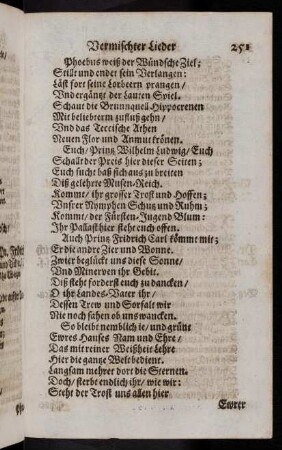 Vermischter Lieder 251
Phoebus weiß der Wündsche Ziel;
Stillt und endet sein Verlangen:
Läst fort seine Lorbeern prangen /
Vnd ergäntzt der Lauten Spiel.
Schaut die Brunnquell Hippocrenen
Mit beliebterm zufluß gehn /
Vnd das Teccische Athen
Neuen Flor und Anmut krönen.
Euch / Printz Wilhelm Ludwig / Euch
Schallt der Preis hier dieser Seiten;
Euch sucht baß sich aus zu breiten
Diß gelehrte Musen-Reich.
Komme / ihr grosser Trost und Hoffen;
Vnsrer Nymphen Schutz und Ruhm;
Komme / der Fürsten-Jugend Blum:
Ihr Pallast hier steht euch offen.
Auch Printz Fridrich Carl kömmt mir;
Er die andre Zier und Wonne.
Zwier beglückt uns diese Sonne /
Vnd Minerven ihr Gebit.
Diß steht forderst euch zu dancken /
O ihr Landes-Vater ihr /
Dessen Trew und Sorfalt wir
Nie noch sahen ob uns wancken.
So bleibt nemblich ie / und grünt
Ewres Hauses Nam und Ehre /
Das mit reiner Weißheit Lehre
Hier die gantze Welt bedient.
Langsam mehret dort die Sternen.
Doch / sterbt endlich ihr / wie wir:
Steht der Trost uns allen hier
Ewrer